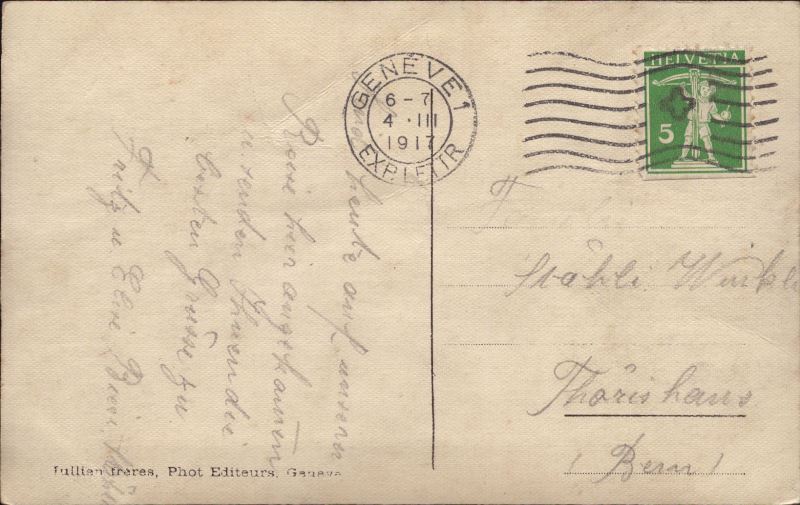 GENÈVE 1
6-7
4 • III
1917
EXP. LETTR
HELVETIA
5
heute auf unserer
Reise hier angekommen
u. senden Ihnen die
besten Grüsse zu.
Fritz u Elise
Stähli
Thörishaus
(Bern)
Jullien frères, Phot Editeurs, Geneve